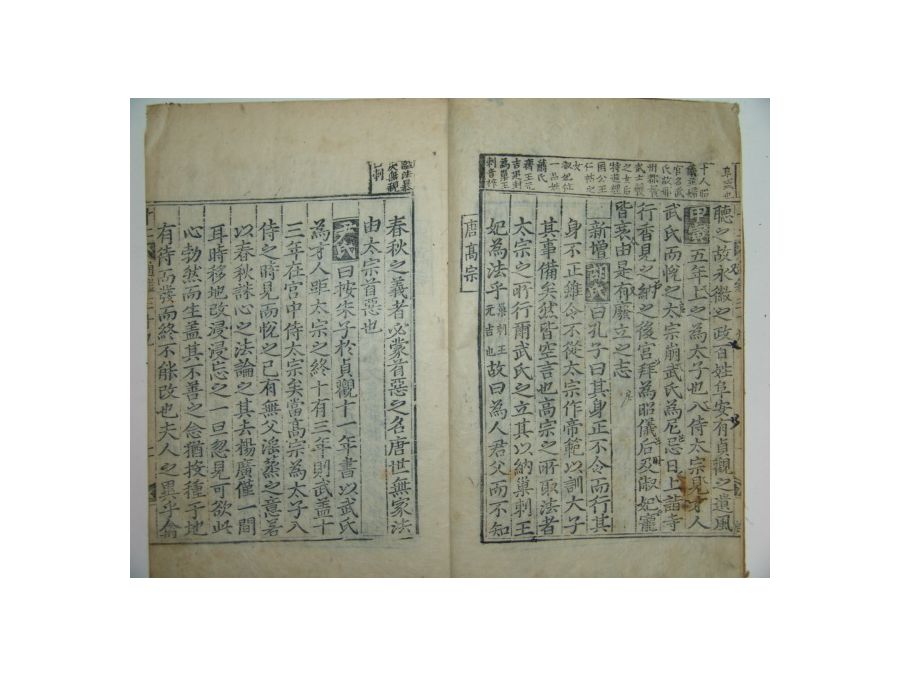 聽之故永徽之政百姓阜安有貞觀之遺風
甲寅五年上之為太子也入侍太宗見才人
武氏而悅之太宗崩武氏為尼忌日上詣寺
行香見之納之後宮拜為昭儀后及淑妃寵
皆衰由是有廢立之志
新增胡氏曰孔子曰其身正不令而行其
身不正雖令不從太宗作帝範以訓太子
其事備矣然皆空言也高宗之所取法者
太宗之所行爾武氏之立其以納巢刺王
妃為法乎巢刺王元吉也故曰為人君父而不知
唐高宗
春秋之義者必蒙首惡之名唐世無家法
由太宗首惡也
尹氏曰按朱子於貞觀十一年書以武氏
為才人距太宗之終十有三年則武蓋十
三年在宮中侍太宗矣當高宗為太子入
侍之時見而悅之已有無父淫烝之意若
以春秋誅心之法論之其去楊廣僅一間
耳時移地改浸浸忘之一旦忽見可欲此
心勃然而生蓋其不善之念猶投種于地
有待而發而終不能改也夫人之異乎禽